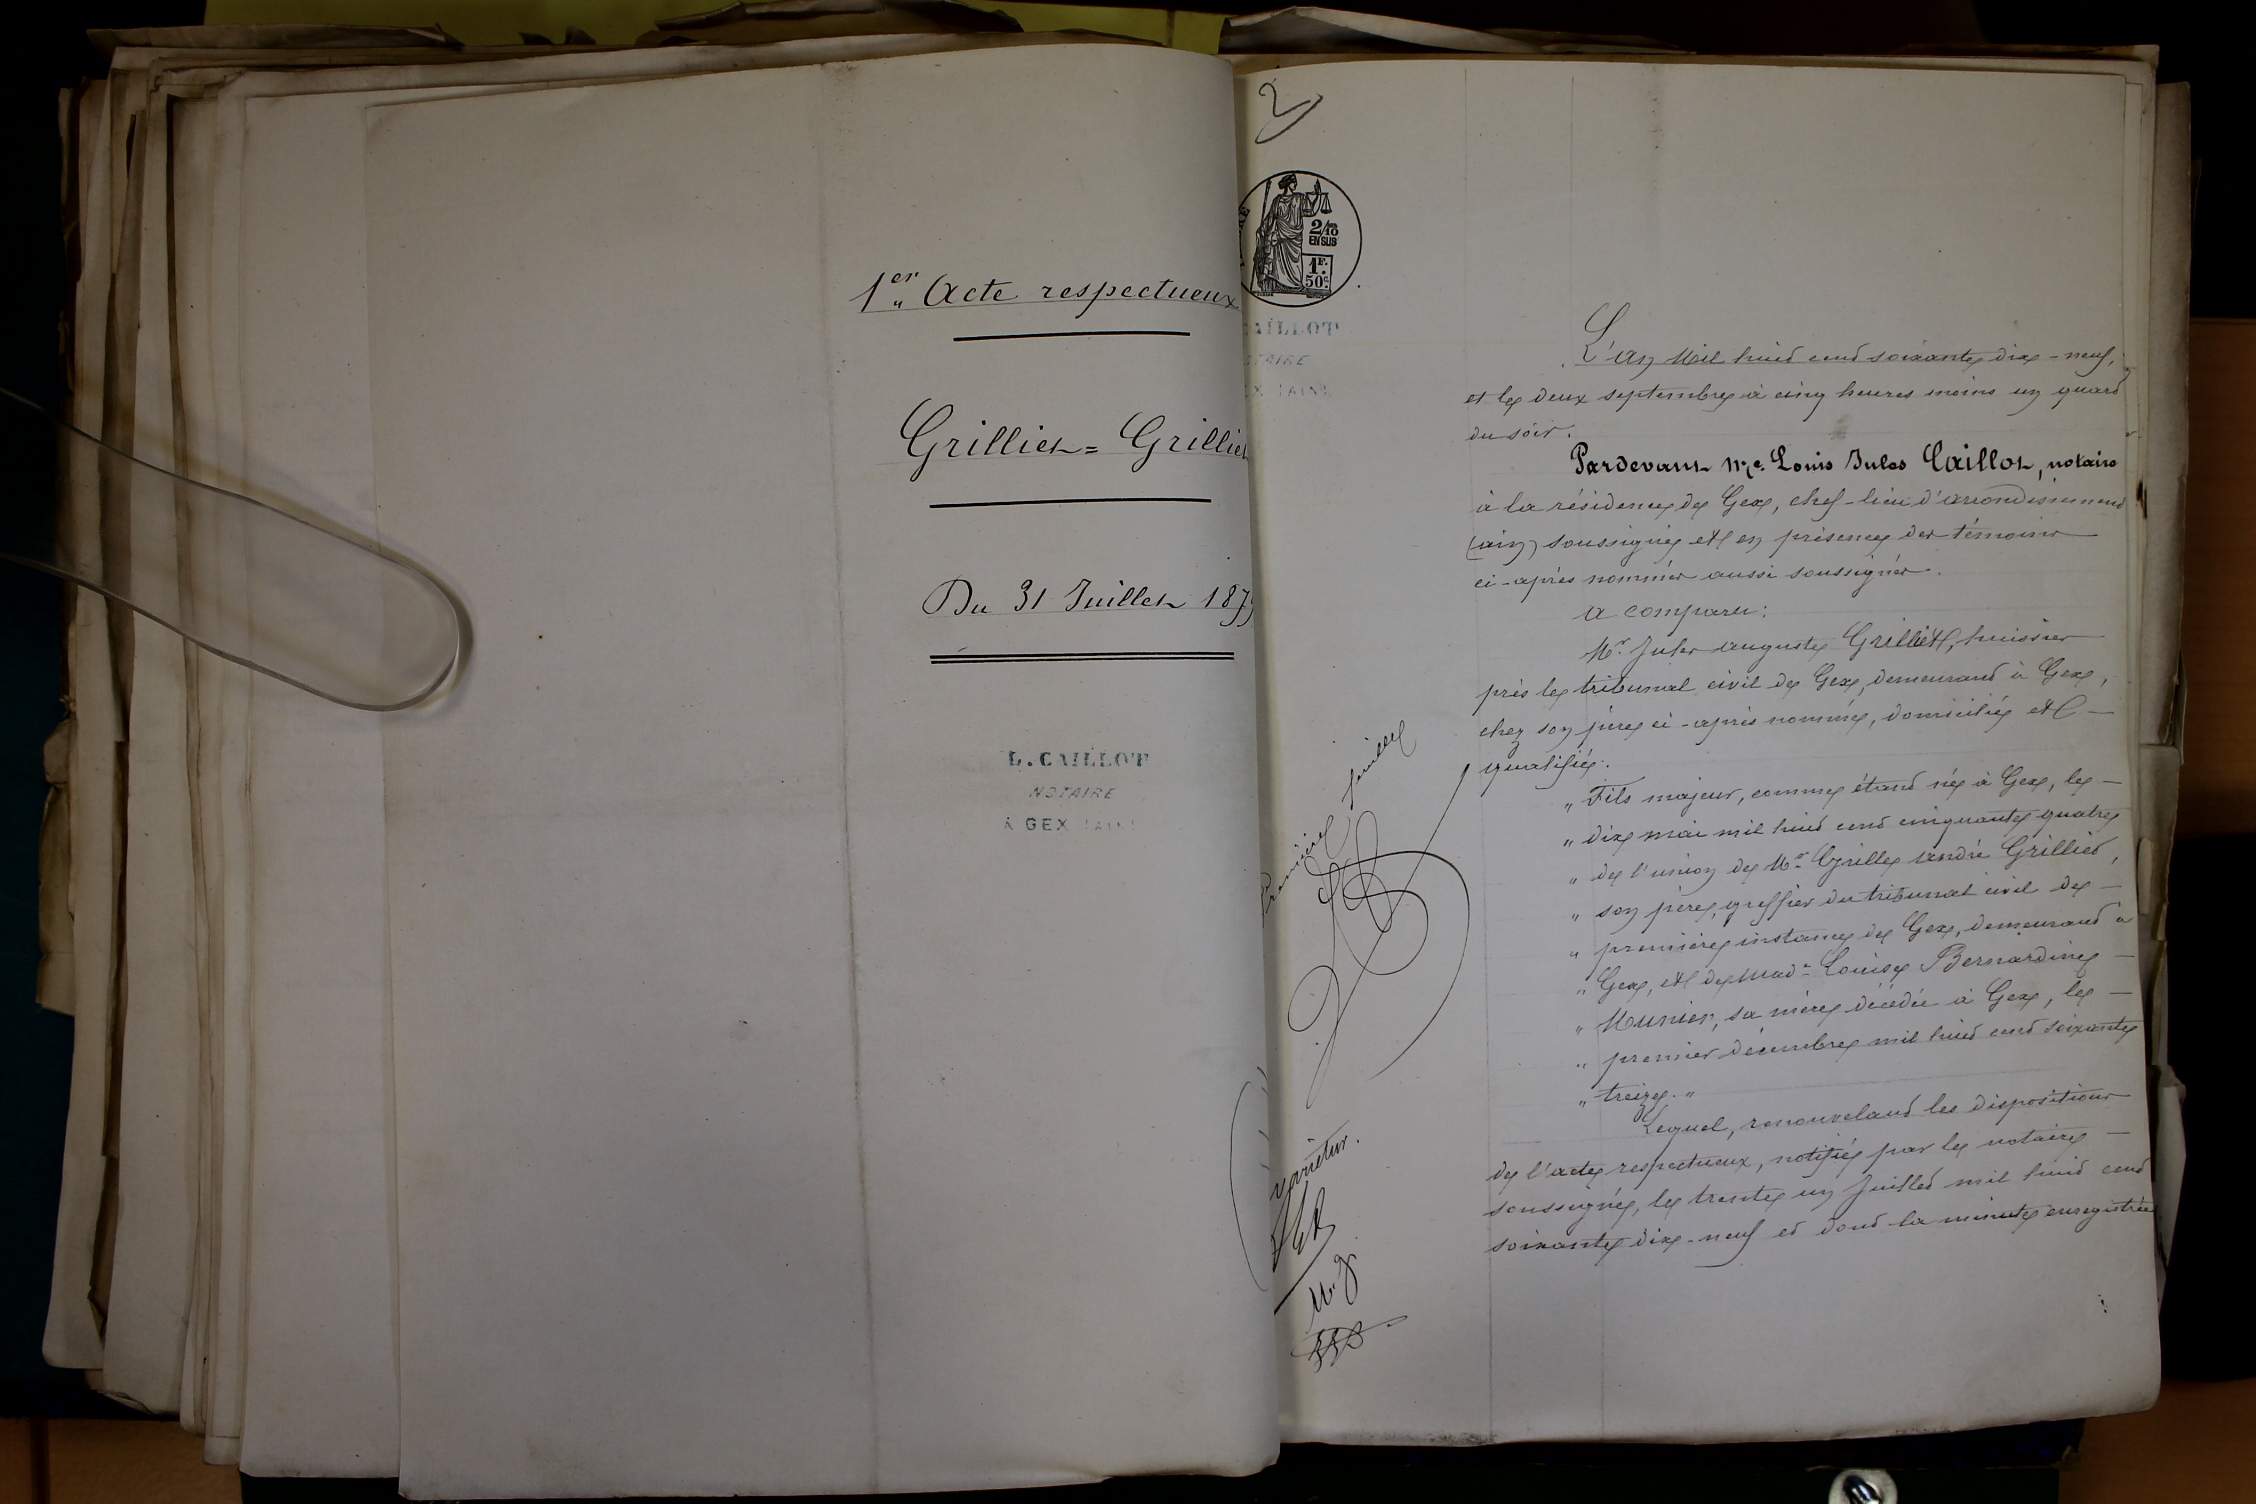 1er Acte respectueux
Grilliet = Grilliet
Du 31 Juillet 1879
L. CAILLOT
NOTAIRE
À GEX (AIN)
2
2/10
EN SUS
1F.
50c
AILLOT
TAIRE
EX (AIN)
L'an Mil huit cent soixante dix-neuf,
et le deux septembre à cinq heures moins un quart
du soir.
Pardevant Me Louis Jules Caillot, notaire
à la résidence de Gex, chef-lieu d'arrondissement
(ain) soussigné et en présence des témoins
ci-après nommés aussi soussignés.
a comparu:
Mr. Jules auguste Grilliet, huissier
près le tribunal civil de Gex, demeurant à Gex,
chez son père ci-après nommé, domicilié et
qualifié.
" Fils majeur, comme étant né à Gex, le
" dix mai mil huit cent cinquante quatre
" de l'union de Mr. andré Grilliet,
" son père, greffier du tribunal civil de
" première instance de Gex, demeurant à
" Gex, et de Made Louise Bernardine
" Munier, sa mère décédée à Gex, le
" premier décembre mil huit cent soixante
" treize. "
Lequel, renouvelant les dispositions
de l'acte respectueux, notifié par le notaire
soussigné, le trente un Juillet mil huit cent
soixante dix-neuf et dont la minute enregistrée
Première feuille
varietur.